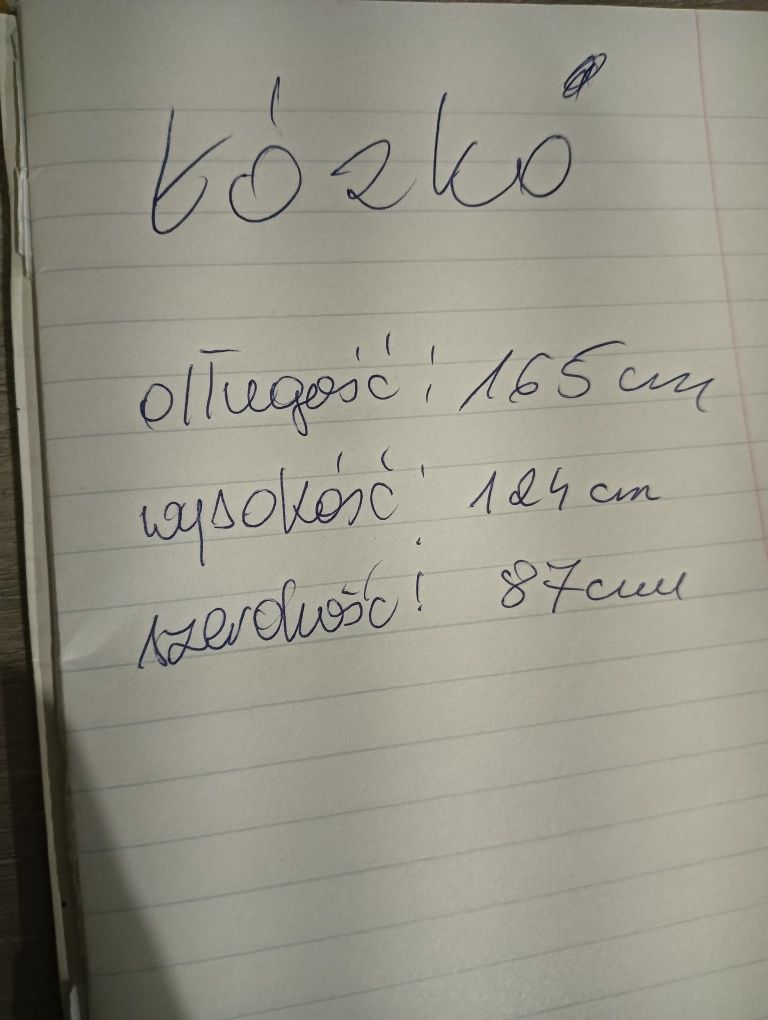 łózko
długość: 165 cm
wysokość: 124 cm
szerokość: 87 cm